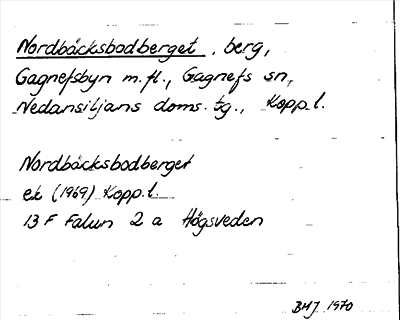 Nordbäcksbodberget, berg,
Gagnefsbyn m.fl., Gagnefs sn,
Nedansiljans doms.tg., Kopp.l.
Nordbäcksbodberget
ek (1969) Kopp.l.
13 F Falun 2 a Högsveden
BHJ 1970